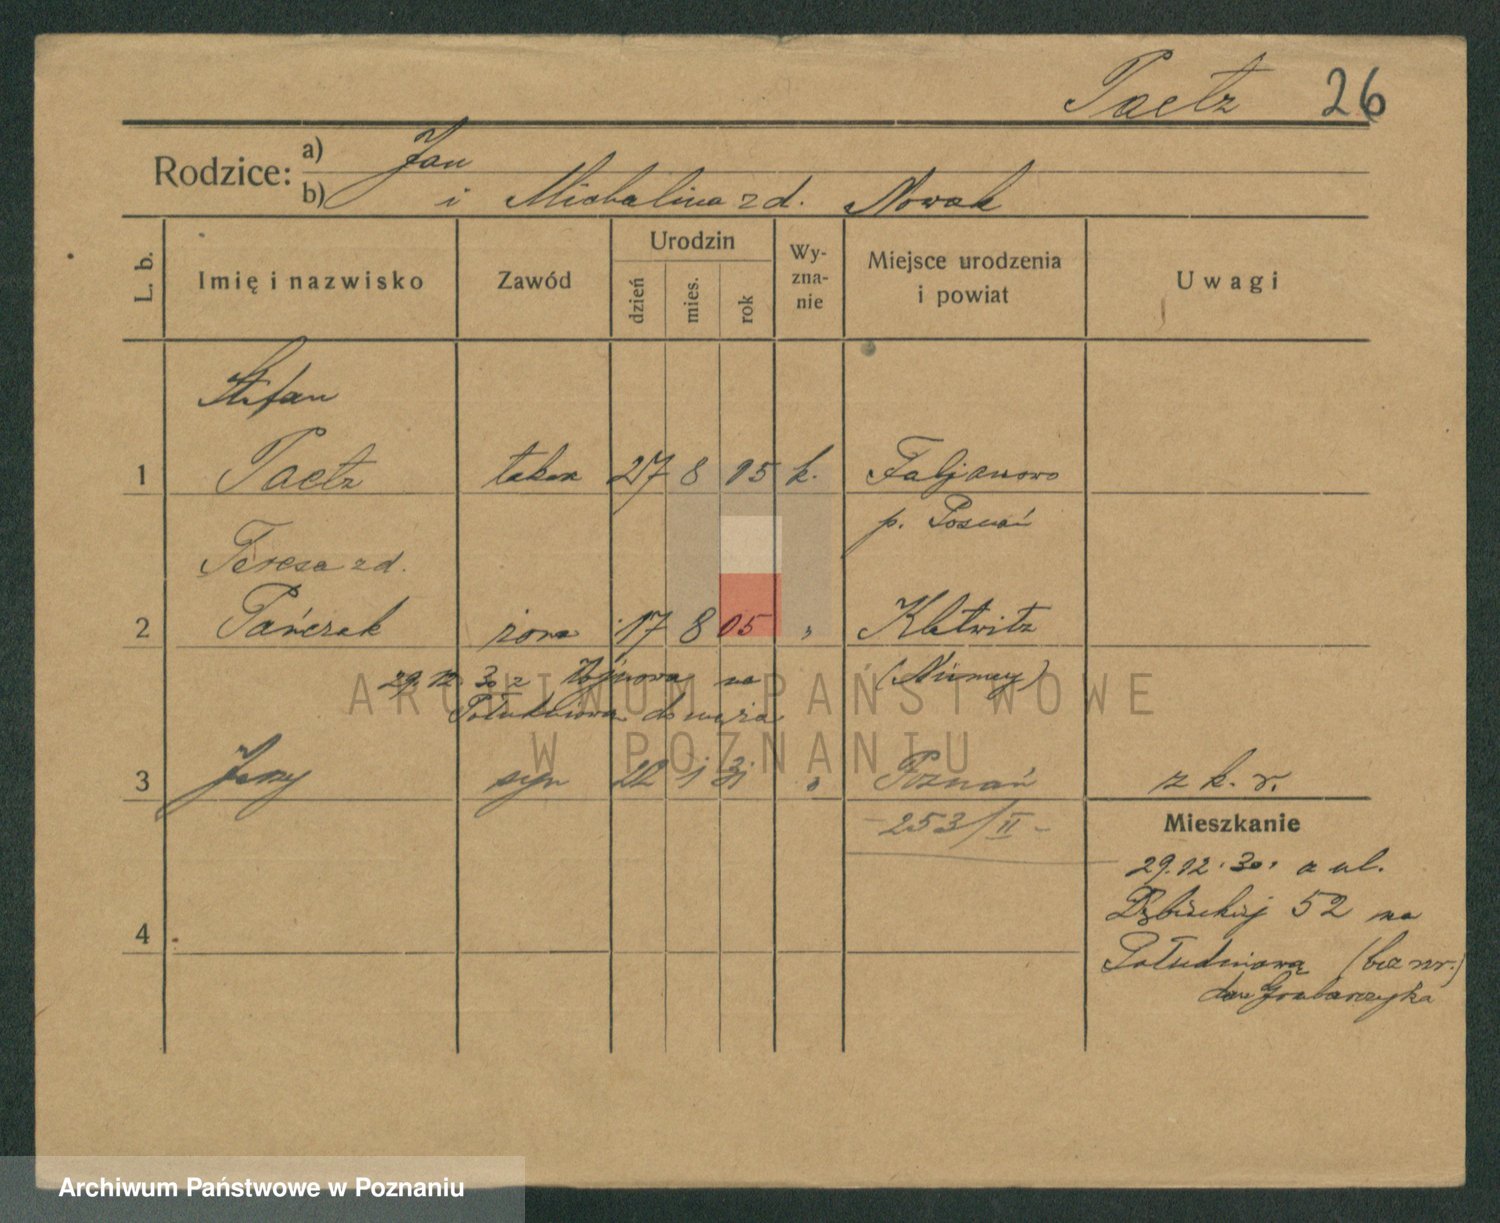 Paetz 26
Rodzice: a) Jan
b) i Michalina zd. Nowak
L. b. Imię i nazwisko Zawód Urodzin dzień mies. rok Wy-zna-nie Miejsce urodzenia i powiat Uwagi
Stefan
1 Paetz 27 8 05 k. Fabjanowo
p. Poznań
Teresa zd.
2 Pańczak żona 17 8 05 " Kletwitz
29. 12 30 z na (Niemcy)
Południową do męża
3 Jerzy syn 22 1 31 " Poznań z k. r.
- 253/II -
Mieszkanie
29.12.30. z ul.
52 na
4 Południową (bez nr.)
dom Grabarczyka
ARCHIWUM PAŃSTWOWE
W POZNANIU
Archiwum Państwowe w Poznaniu